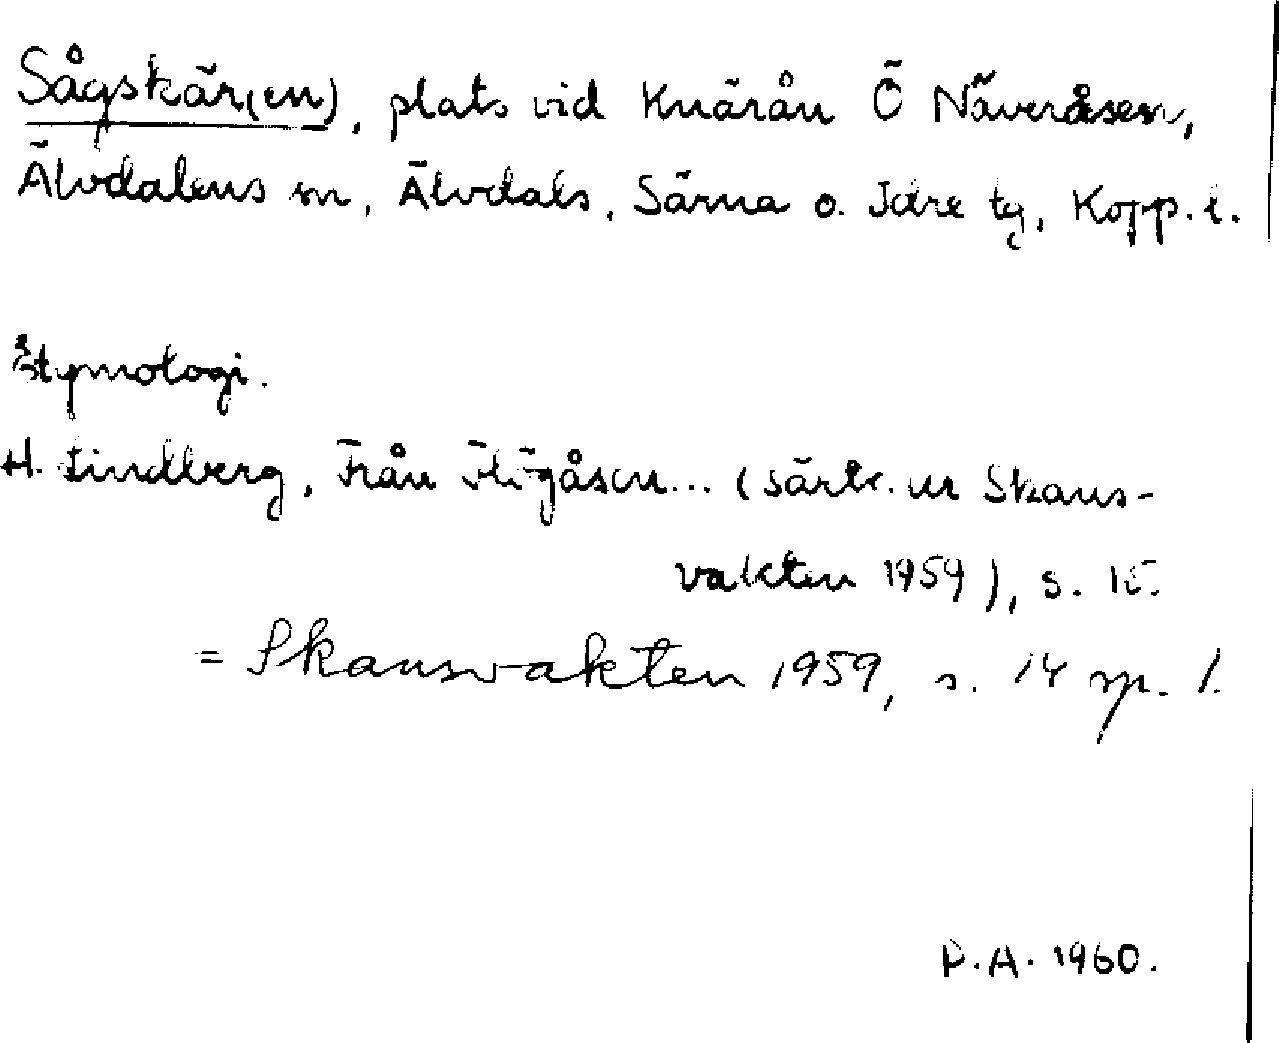 Sågskär(en), plats vid Knärån Ö Näveråsen,
Älvdalens sn, Älvdals, Särna o. Idre tg, Kopp. l.
Etymologi.
H. Lindberg, Från Högåsen... (särtr. ur Skans-
vakten 1959), s.
= Skansvakten 1959, s. 14 sp. 1.
P.A. 1960.